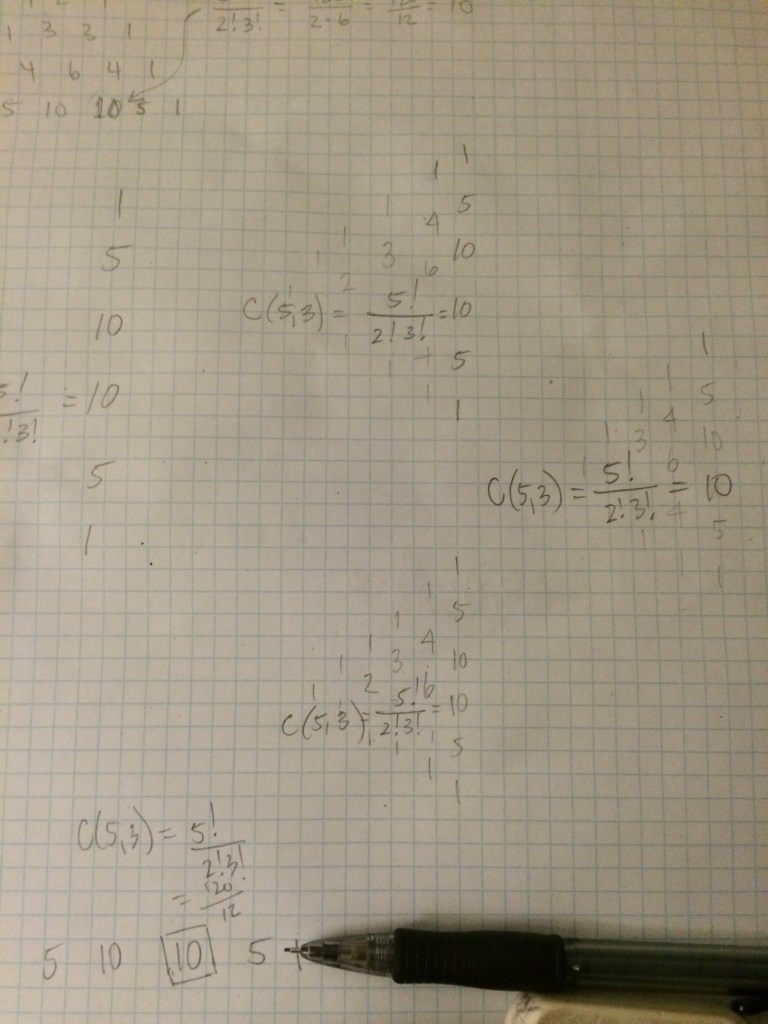 1 2 1
2!3! = 2·6 = 12 = 10
1 3 3 1
4 6 4 1
5 10 10 5 1
1
5
10
5!/!3! = 10
5
1
1
1
1 5
4
1 3 10
1 2 6
C(5,3) = 5!/2!3! = 10
1 1 5
1 1
1
1
1 5
4
1 3 10
6
C(5,3) = 5!/2!3! = 10
4
1 5
1 1
1
1
1 5
1 4
1 3 10
1 2 6
C(5,3) = 5!/2!3! = 10
1 1 1 5
1
1
C(5,3) = 5!/2!3!
= 120/12
5 10 10 5 1